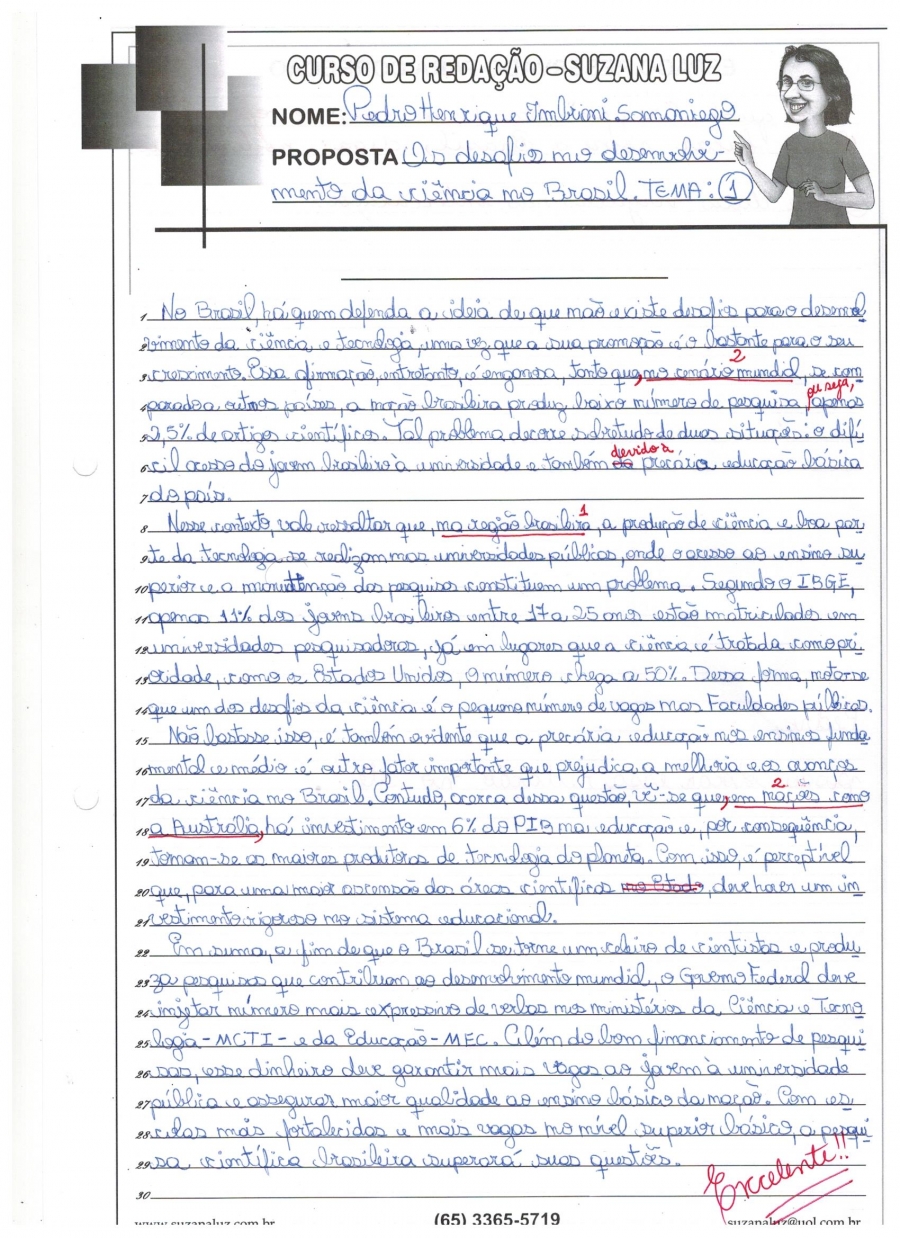 CURSO DE REDAÇÃO - SUZANA LUZ
NOME: Pedro Henrique Imbriani Samaniego
PROPOSTA Os desafios no desenvolvi-
mento da ciência no Brasil. TEMA: 1
1 No Brasil, há quem defenda a ideia de que não existe desafio para o desenvol
2 vimento da ciência e tecnologia, uma vez que a sua promoção é o bastante para o seu
2
3 crescimento. Essa afirmação, entretanto, é enganosa, tanto que, no cenário mundial, se com
ou seja,
4 parado a outros países, a nação brasileira produz baixo número de pesquisa, apenas
5 2,5% de artigos científicos. Tal problema decorre sobretudo de duas situações: o difí
devido à
6 cil acesso do jovem brasileiro à universidade e também da precária educação básica
7 do país.
1
8 Nesse contexto, vale ressaltar que, na região brasileira, a produção de ciência e boa par
9 te da tecnologia se realizam nas universidades públicas, onde o acesso ao ensino su
10 perior e a manutenção das pesquisas constituem um problema. Segundo o IBGE,
11 apenas 11% dos jovens brasileiros entre 17 a 25 anos estão matriculados em
12 universidades pesquisadoras, já em lugares que a ciência é tratada como pri
13 oridade, como os Estados Unidos, o número chega a 50%. Dessa forma, nota-se
14 que um dos desafios da ciência é o pequeno número de vagas nas Faculdades públicas.
15 Não bastasse isso, é também evidente que a precária educação nos ensinos funda
16 mental e médio é outro fator importante que prejudica a melhoria e os avanços
2
17 da ciência no Brasil. Contudo, acerca dessa questão, vê-se que, em nações como
18 a Austrália, há investimento em 6% do PIB na educação e, por consequência,
19 tornam-se as maiores produtoras de tecnologia do planeta. Com isso, é perceptível
20 que, para uma maior ascensão das áreas científicas no Estado, deve haver um in
21 vestimento rigoroso no sistema educacional.
22 Em suma, a fim de que o Brasil se torne um celeiro de cientistas e produ
23 za pesquisas que contribuam ao desenvolvimento mundial, o Governo Federal deve
24 injetar número mais expressivo de verbas nos ministérios da Ciência e Tecno
25 logia - MCTI - e da Educação - MEC. Além do bom financiamento de pesqui
26 sas, esse dinheiro deve garantir mais vagas ao jovem à universidade
27 pública e assegurar maior qualidade ao ensino básico da nação. Com es
28 colas mais fortalecidas e mais vagas no nível superior básico, a pesqui
29 sa científica brasileira superará suas questões.
Excelente!!
30
www.suzanaluz.com.br (65) 3365-5719 suzanaluz@uol.com.br